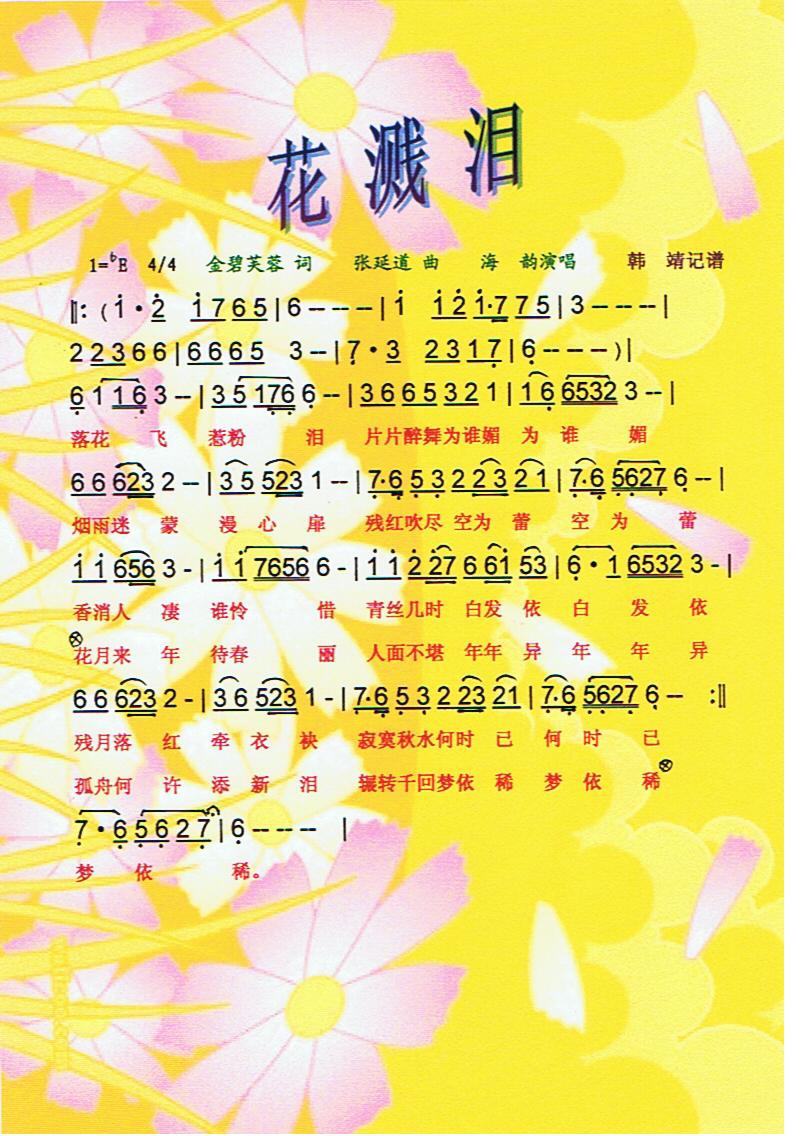 花溅泪
1=ᵇE 4/4 金碧芙蓉 词 张延道 曲 海 韵演唱 韩 靖记谱
‖: ( i̇ · 2̇ i̇ 7 6 5 | 6 -- -- -- | i̇ i̇ 2̇ i̇· 7 7 5 | 3 -- -- -- |
2 2 3 6 6 | 6 6 6 5 3 -- | 7̣ · 3̣ 2 3 1 7̣ | 6̣ -- -- -- ) |
6̣ 1 1 6̣ 3 -- | 3 5 1 7̣ 6̣ 6̣ -- | 3 6 6 5 3 2 1 | 1 6̣ 6532 3 -- |
落花 飞 惹粉 泪 片片醉舞为谁媚 为 谁 媚
6 6 623 2 -- | 3 5 523 1 -- | 7̣·6̣ 5̣ 3̣ 2 2 3 2 1 | 7̣·6̣ 5̣6̣27̣ 6̣ -- |
烟雨迷 蒙 漫 心 扉 残红吹尽 空为 蕾 空 为 蕾
i̇ i̇ 656 3 - | i̇ i̇ 7656 6 - | i̇ i̇ 2̇ 2̇7 6 6i̇ 53 | 6̣ · 1 6532 3 - |
香消人 凄 谁怜 惜 青丝几时 白发 依 白 发 依
花月来 年 待春 丽 人面不堪 年年 异 年 年 异
6 6 623 2 - | 3 6 523 1 - | 7̣·6̣ 5̣ 3̣ 2 23 21 | 7̣·6̣ 5̣6̣27̣ 6̣ -- :‖
残月落 红 牵 衣 袂 寂寞秋水何时 已 何 时 已
孤舟何 许 添 新 泪 辗转千回梦依 稀 梦 依 稀
7̣ · 6̣ 5̣ 6̣ 2 7̣ | 6̣ -- -- -- |
梦 依 稀。